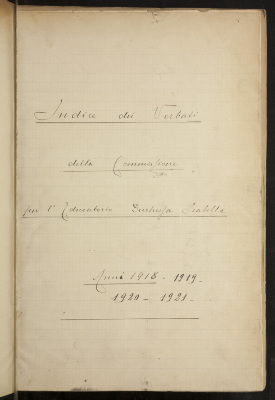 Indice dei Verbali
della Commissione
per l'Educatorio Duchessa Isabella
Anni 1918 - 1919 -
1920 - 1921 -